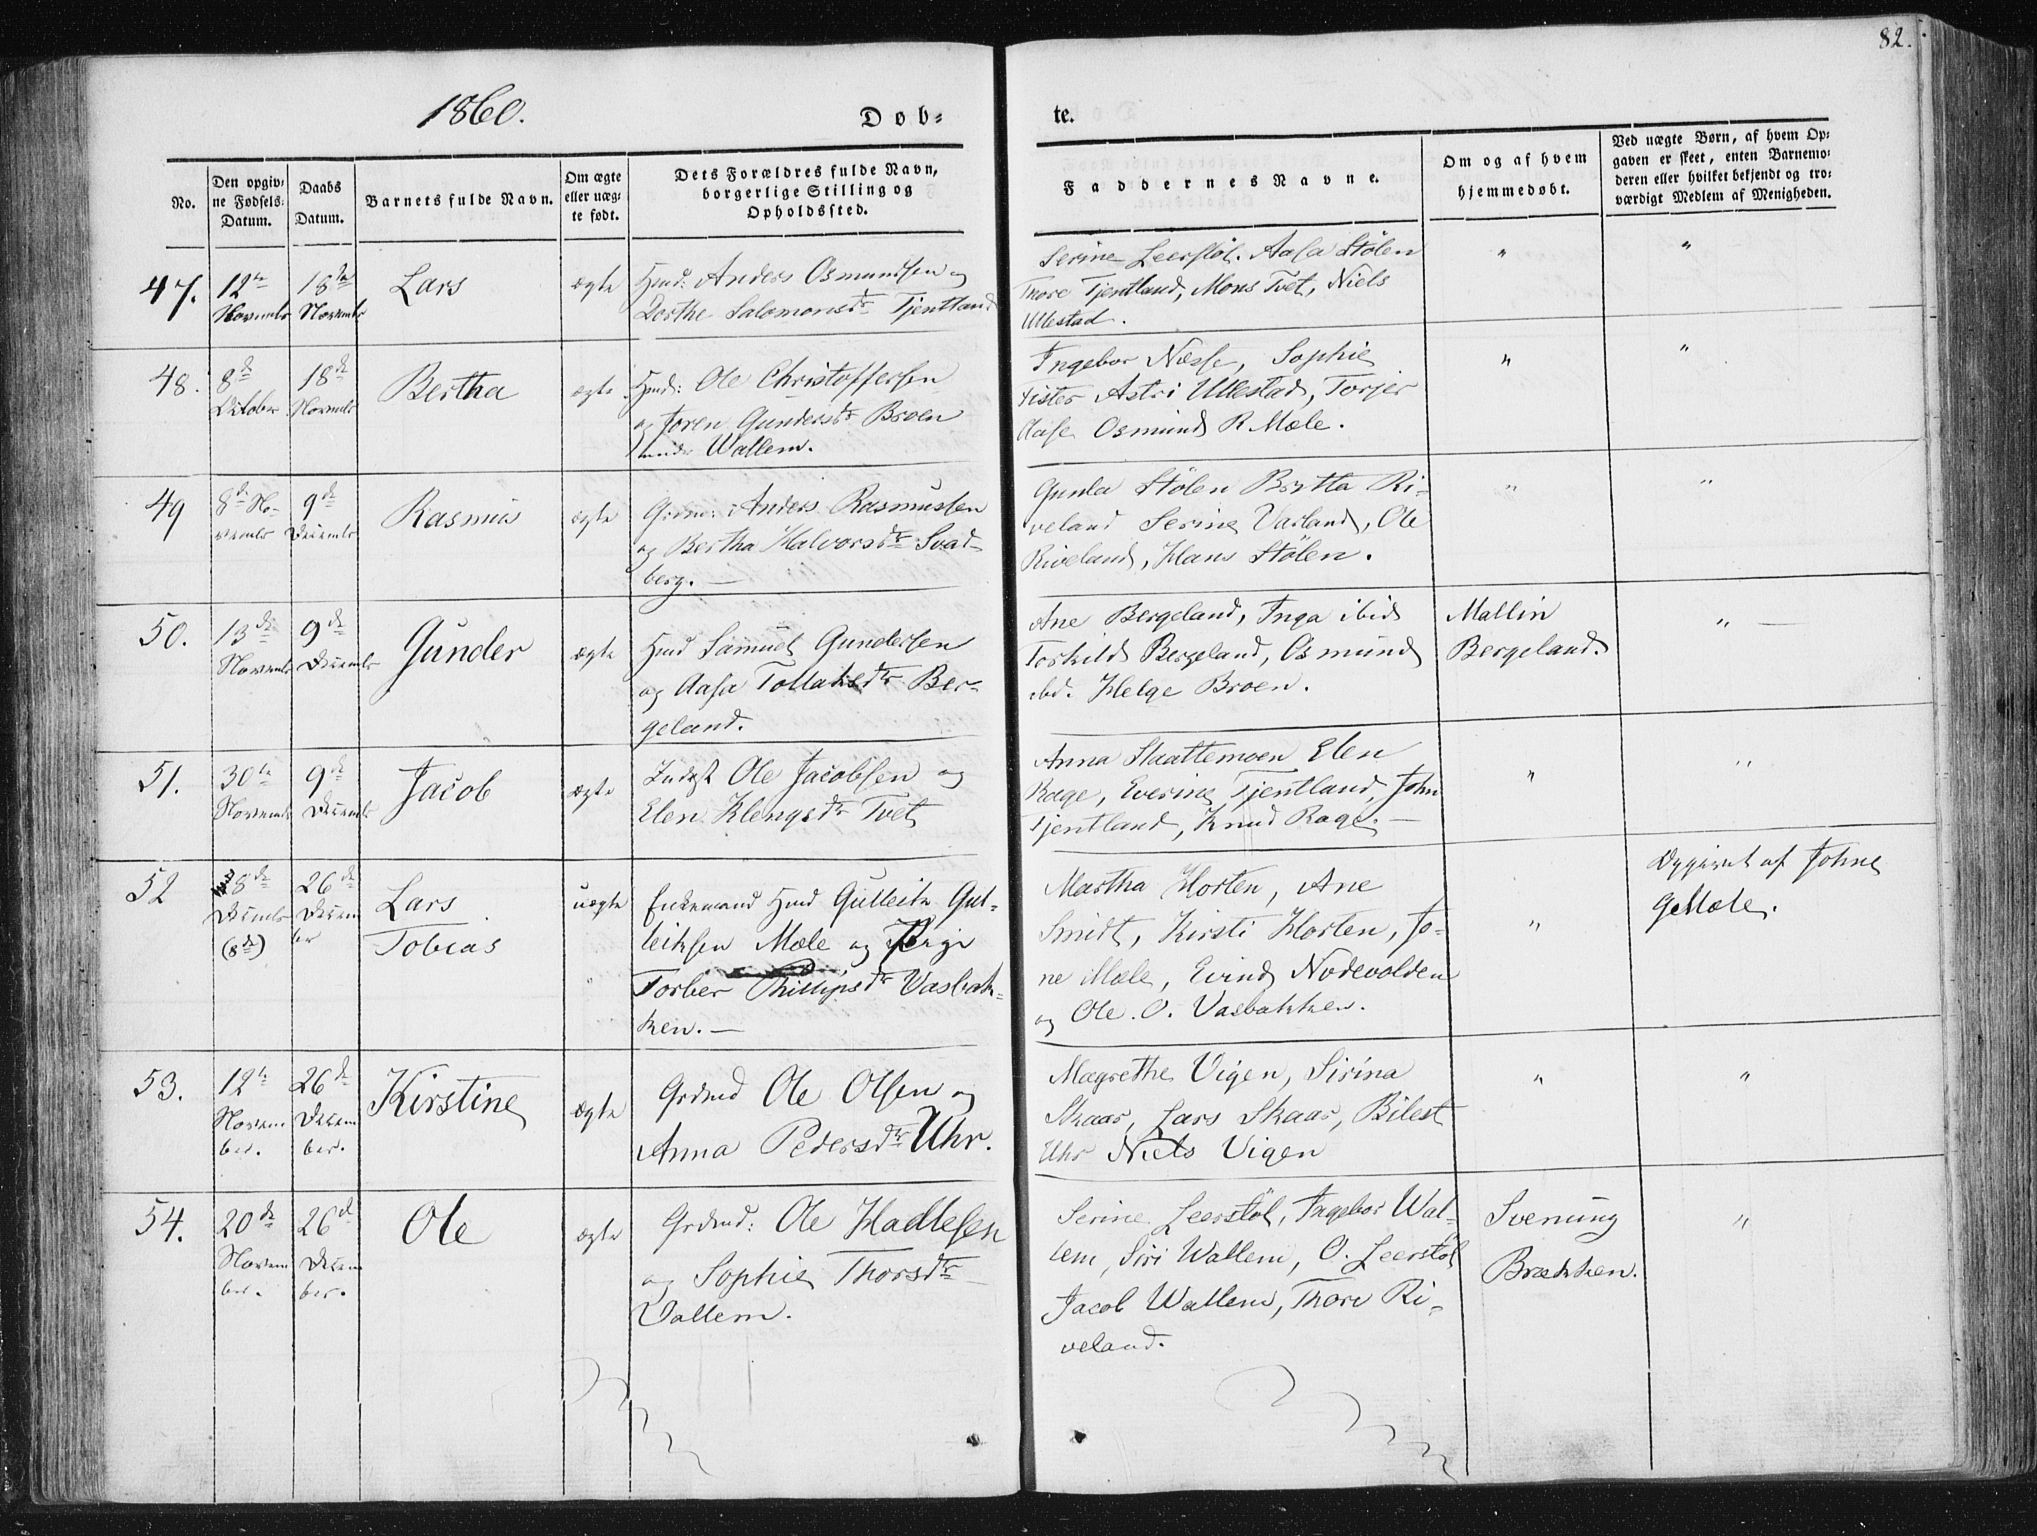 82.
1860.
Døb-
te.
No.
Den opgiv-
ne Fødsels-
Datum.
Daabs
Datum.
Barnets fulde Navn.
Om ægte
eller uæg-
te født.
Dets Forældres fulde Navn,
borgerlige Stilling og
Opholdssted.
Faddernes Navne.
Om og af hvem
hjemmedøbt.
Ved uægte Børn, af hvem Op-
gaven er skeet, enten Barnemo-
deren eller hvilket bekjendt og tro-
værdigt Medlem af Menigheden.
47.
12te
Novembr
18de
Novembr
Lars
ægte
Hmd: Anders Osmundsen og
Dorthe Salomonsdtr Tjentland
Serine Leerstøl. Aasa Stølen
Thore Tjentland, Mons Tvet, Niels
Ullestad.
"
"
48.
8de
October
18de
Novembr
Bertha
ægte
Hmd: Ole Christoffersen
og Joren Gundersdtr Broen
under Wallem.
Ingebor Næsse, Sophie
Astri Ullestad, Torjer
Aase Osmund R Mæle.
"
"
49
8de No-
vembr
9de
Decembr
Rasmus
ægte
Grdm: Anders Rasmussen
og Bertha Halvorsdtr Svad-
berg. —
Gunla Stølen Brytta Ri-
veland Serine Varland, Ole
Riveland, Hans Stølen.
"
"
50.
13de
Novembr
9de
Decembr
Gunder
ægte
Hmd Samuel Gundersen
og Aasa Tollaksdtr Ber-
geland.
Ane Bergeland, Inga ibid
Torkild Bergeland, Osmund
ibd. Helge Broen.
Mallin
Bergeland.
" —
51.
30te
Novembr
9de
Decembr
Jacob
ægte
Inderst Ole Jacobsen og
Elen Klengsdtr Tvet
Anna Slaattemoen Elen
Rage, Everine Tjentland, John
Tjentland, Knud Rage. —
"
"
52
8de
Decembr
(8de)
26de
Decem
ber
Lars
Tobias
uægte
"
Enkemand Hmd Gulleik Gul-
leiksen Mæle og Pige
Torber Phillipsdtr Vasbak-
ken. —
Martha Horten, Ane
Smidt, Kirsti Horten, Jo-
ne Mæle, Evind Nodevolden
og Ole. O. Vasbakken.
"
Opgivet af Johne
GMæle.
53.
12te
Novem
ber.
26de
Decem
ber.
Kirstine
ægte
Grdmd Ole Olsen og
Anna Pedersdtr Uhr.
Mægrethe Vigen, Sirina
Skaar, Lars Skaar, Bilest
Uhr Niels Vigen
"
"
54.
20de
Novem
ber.
26de
Decem
ber.
Ole
ægte
Grdmd: Ole Hadlesen
og Sophie Thorsdtr
Vallem.
Serine Leerstøl, Ingebor Wal-
lem, Siri Wallem, O. Leerstøl
Jacob Wallem, Thore Ri-
veland.
Svenung
Brækken.
"